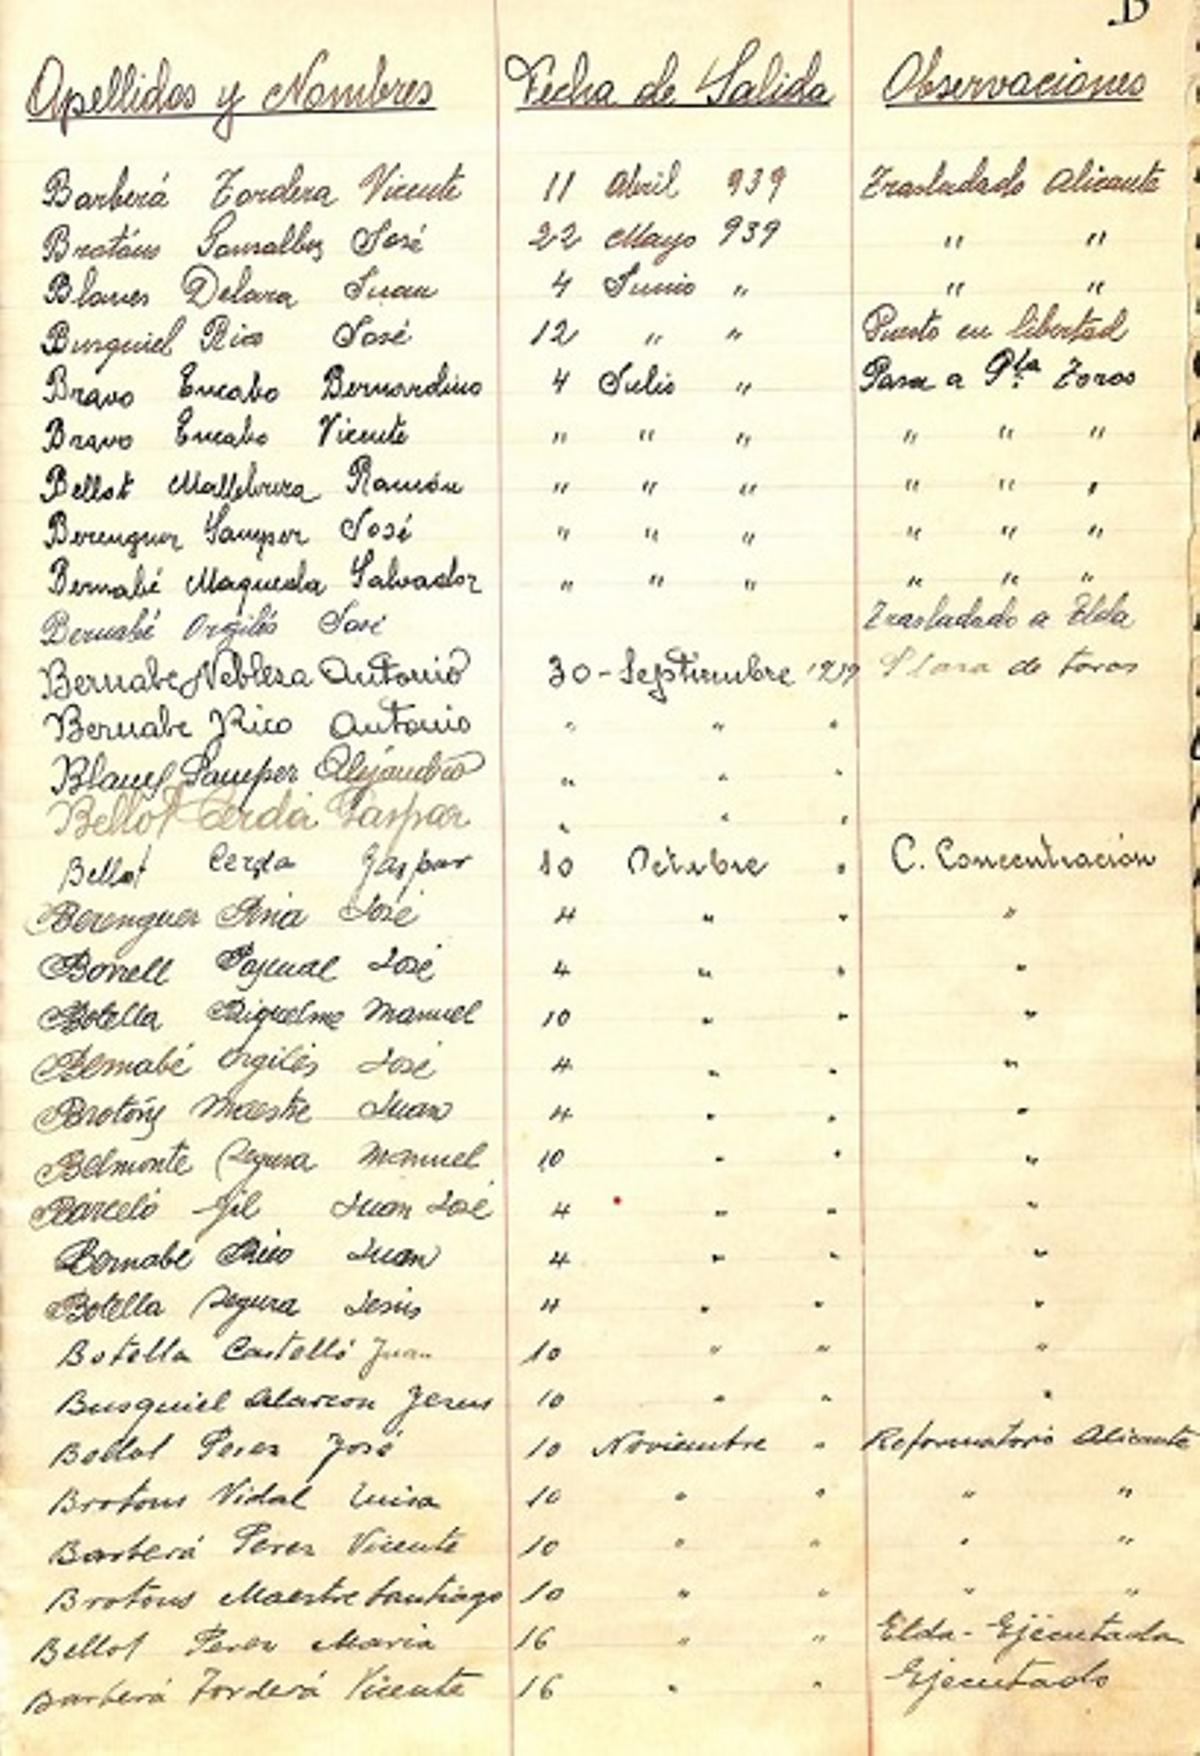 B
Apellidos y Nombres Fecha de Salida Observaciones
Barberá Tordera Vicente 11 Abril 939 Trasladado Alicante
Brotóns Gonsalbez José 22 Mayo 939 " "
Blanes Delara Juan 4 Junio " " "
Busquiel Rico José 12 " " Puesto en libertad
Bravo Encabo Bernardino 4 Julio " Pasa a Pta. Toros
Bravo Encabo Vicente " " " " " "
Bellot Ramón " " " " " "
Berenguer Samper José " " " " " "
Bernabé Maqueda Salvador " " " " " "
Bernabé Orgilés José Trasladado a Elda
Bernabe Antonio 30 - Septiembre 1939 Plaza de toros
Bernabe Rico Antonio " " "
Blanes Samper Alejandro " " "
Bellot Cerdá Gaspar " " "
Bellot Cerda Gaspar 10 Octubre " C. Concentración
Berenguer José 4 " " "
Borrell Pascual José 4 " " "
Botella Riquelme Manuel 10 " " "
Bernabé Orgilés José 4 " " "
Brotóns Maestre Juan 4 " " "
Belmonte Segura Manuel 10 " " "
Barceló Gil Juan José 4 " " "
Bernabe Rico Juan 4 " " "
Botella Segura Jesús 4 " " "
Botella Castelló Juan 10 " " "
Busquiel Alarcon Jesus 10 " " "
Bellot Perez José 10 Noviembre " Reformatorio Alicante
Brotons Vidal Luisa 10 " " " "
Barberá Perez Vicente 10 " " " "
Brotons Maestre Santiago 10 " " " "
Bellot Perez Maria 16 " " Elda - Ejecutada
Barberá Torderá Vicente 16 " " Ejecutado